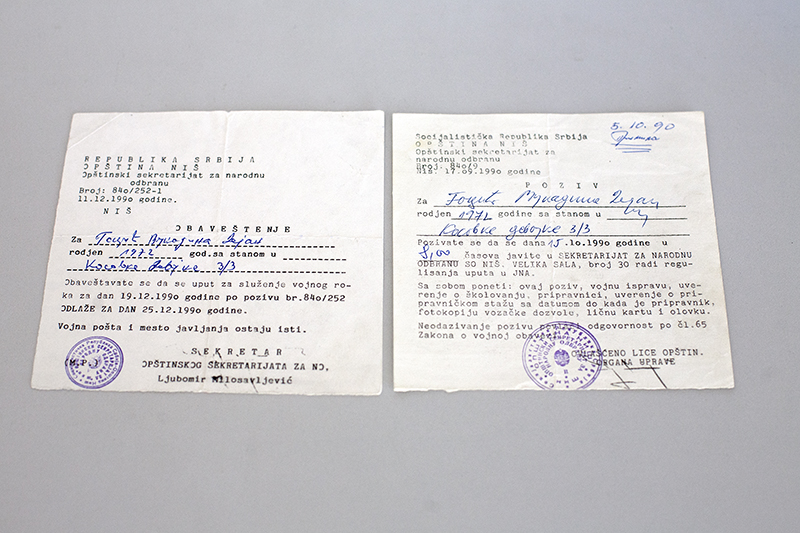 REPUBLIKA SRBIJA
OPŠTINA NIŠ
Opštinski sekretarijat za narodnu
odbranu
Broj: 84o/252-1
11.12.199o godine.
NIŠ
OBAVEŠTENJE
Za
rodjen 1972 god.sa stanom u
3/3
Obaveštavate se da se uput za služenje vojnog ro-
ka za dan 19.12.199o godine po pozivu br.84o/252
ODLAŽE ZA DAN 25.12.199o godine.
Vojna pošta i mesto javljanja ostaju isti.
SEKRETAR
(M.P.) OPŠTINSKOG SEKRETARIJATA ZA NO,
Ljubomir Milosavljević
5.10.90
Socijalistička Republika Srbija
OPŠTINA NIŠ
Opštinski sekretarijat za
narodnu odbranu
Broj: 84o/9
Niš: 17.o9.199o godine
POZIV
Za
rodjen 1972 godine sa stanom u
3/3
Pozivate se da se dana 15.1o.199o godine u
časova javite u SEKRETARIJAT ZA NARODNU
ODBRANU SO NIŠ. VELIKA SALA, broj 30 radi regu-
lisanja uputa u JNA.
Sa sobom poneti: ovaj poziv, vojnu ispravu, uve-
renje o školovanju, pripravnici, uverenje o pri-
pravničkom stažu sa datumom do kada je pripravnik,
fotokopiju vozačke dozvole, ličnu kartu i olovku.
Neodazivanje pozivu odgovornost po čl.65
Zakona o vojnoj
LICE OPŠTIN.
ORGANA UPRAVE